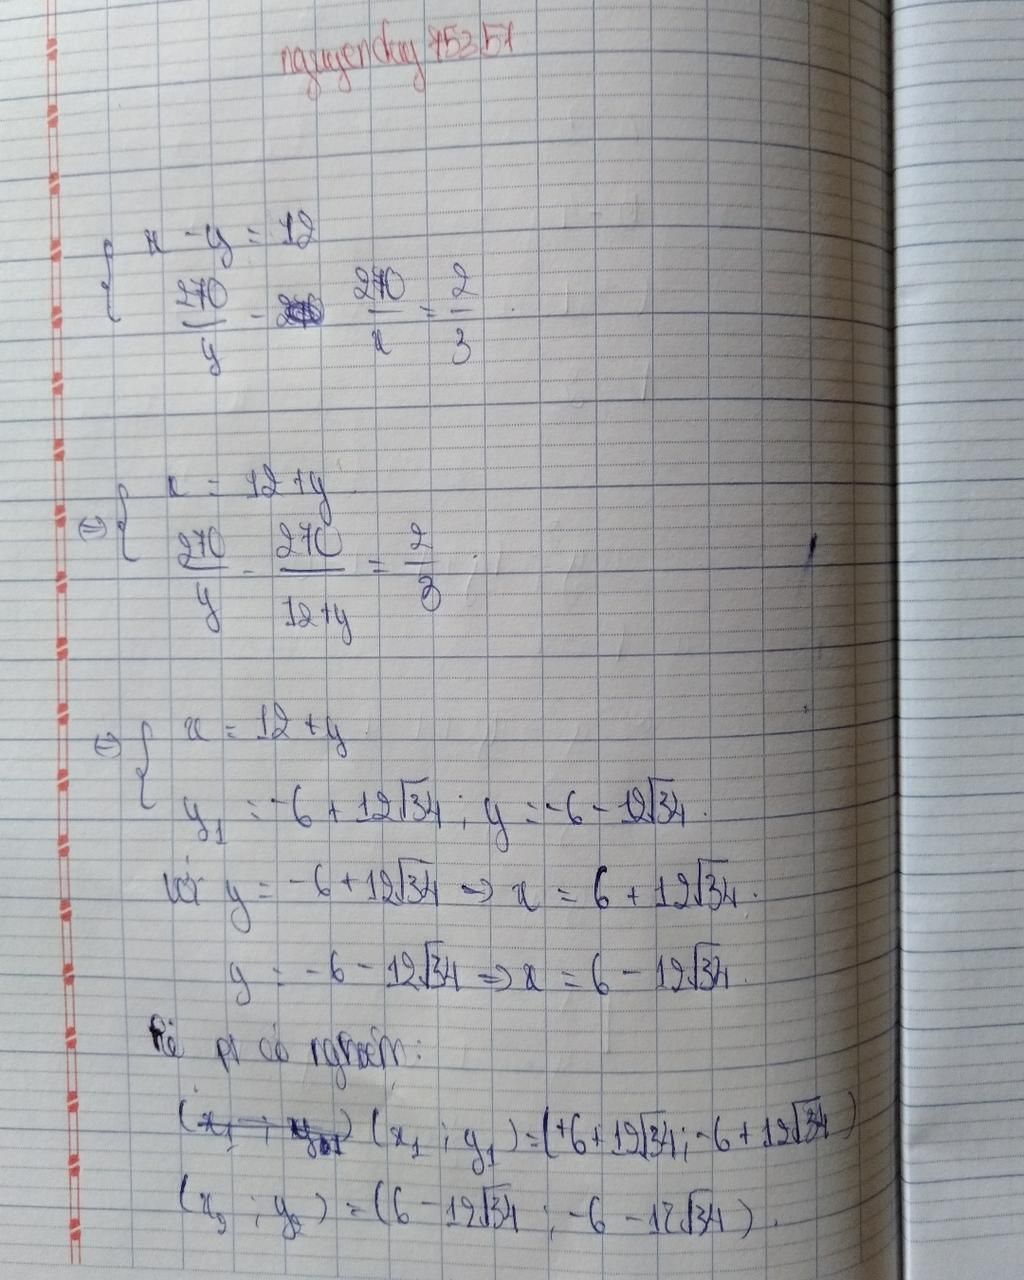 nguyenduy75351
{ x - y = 12
270/y - 270/x = 2/3.
⇔ { x = 12 + y
270/y - 270/12+y = 2/3.
⇔ { x = 12 + y
y₁ = -6 + 12√34 ; y = -6 - 12√34.
Với y = -6 + 12√34 ⇒ x = 6 + 12√34.
y = -6 - 12√34 ⇒ x = 6 - 12√34.
Hệ pt có nghiệm:
(x₁ ; y₁) = (+6 + 12√34 ; -6 + 12√34)
(x₂ ; y₂) = (6 - 12√34 ; -6 - 12√34).